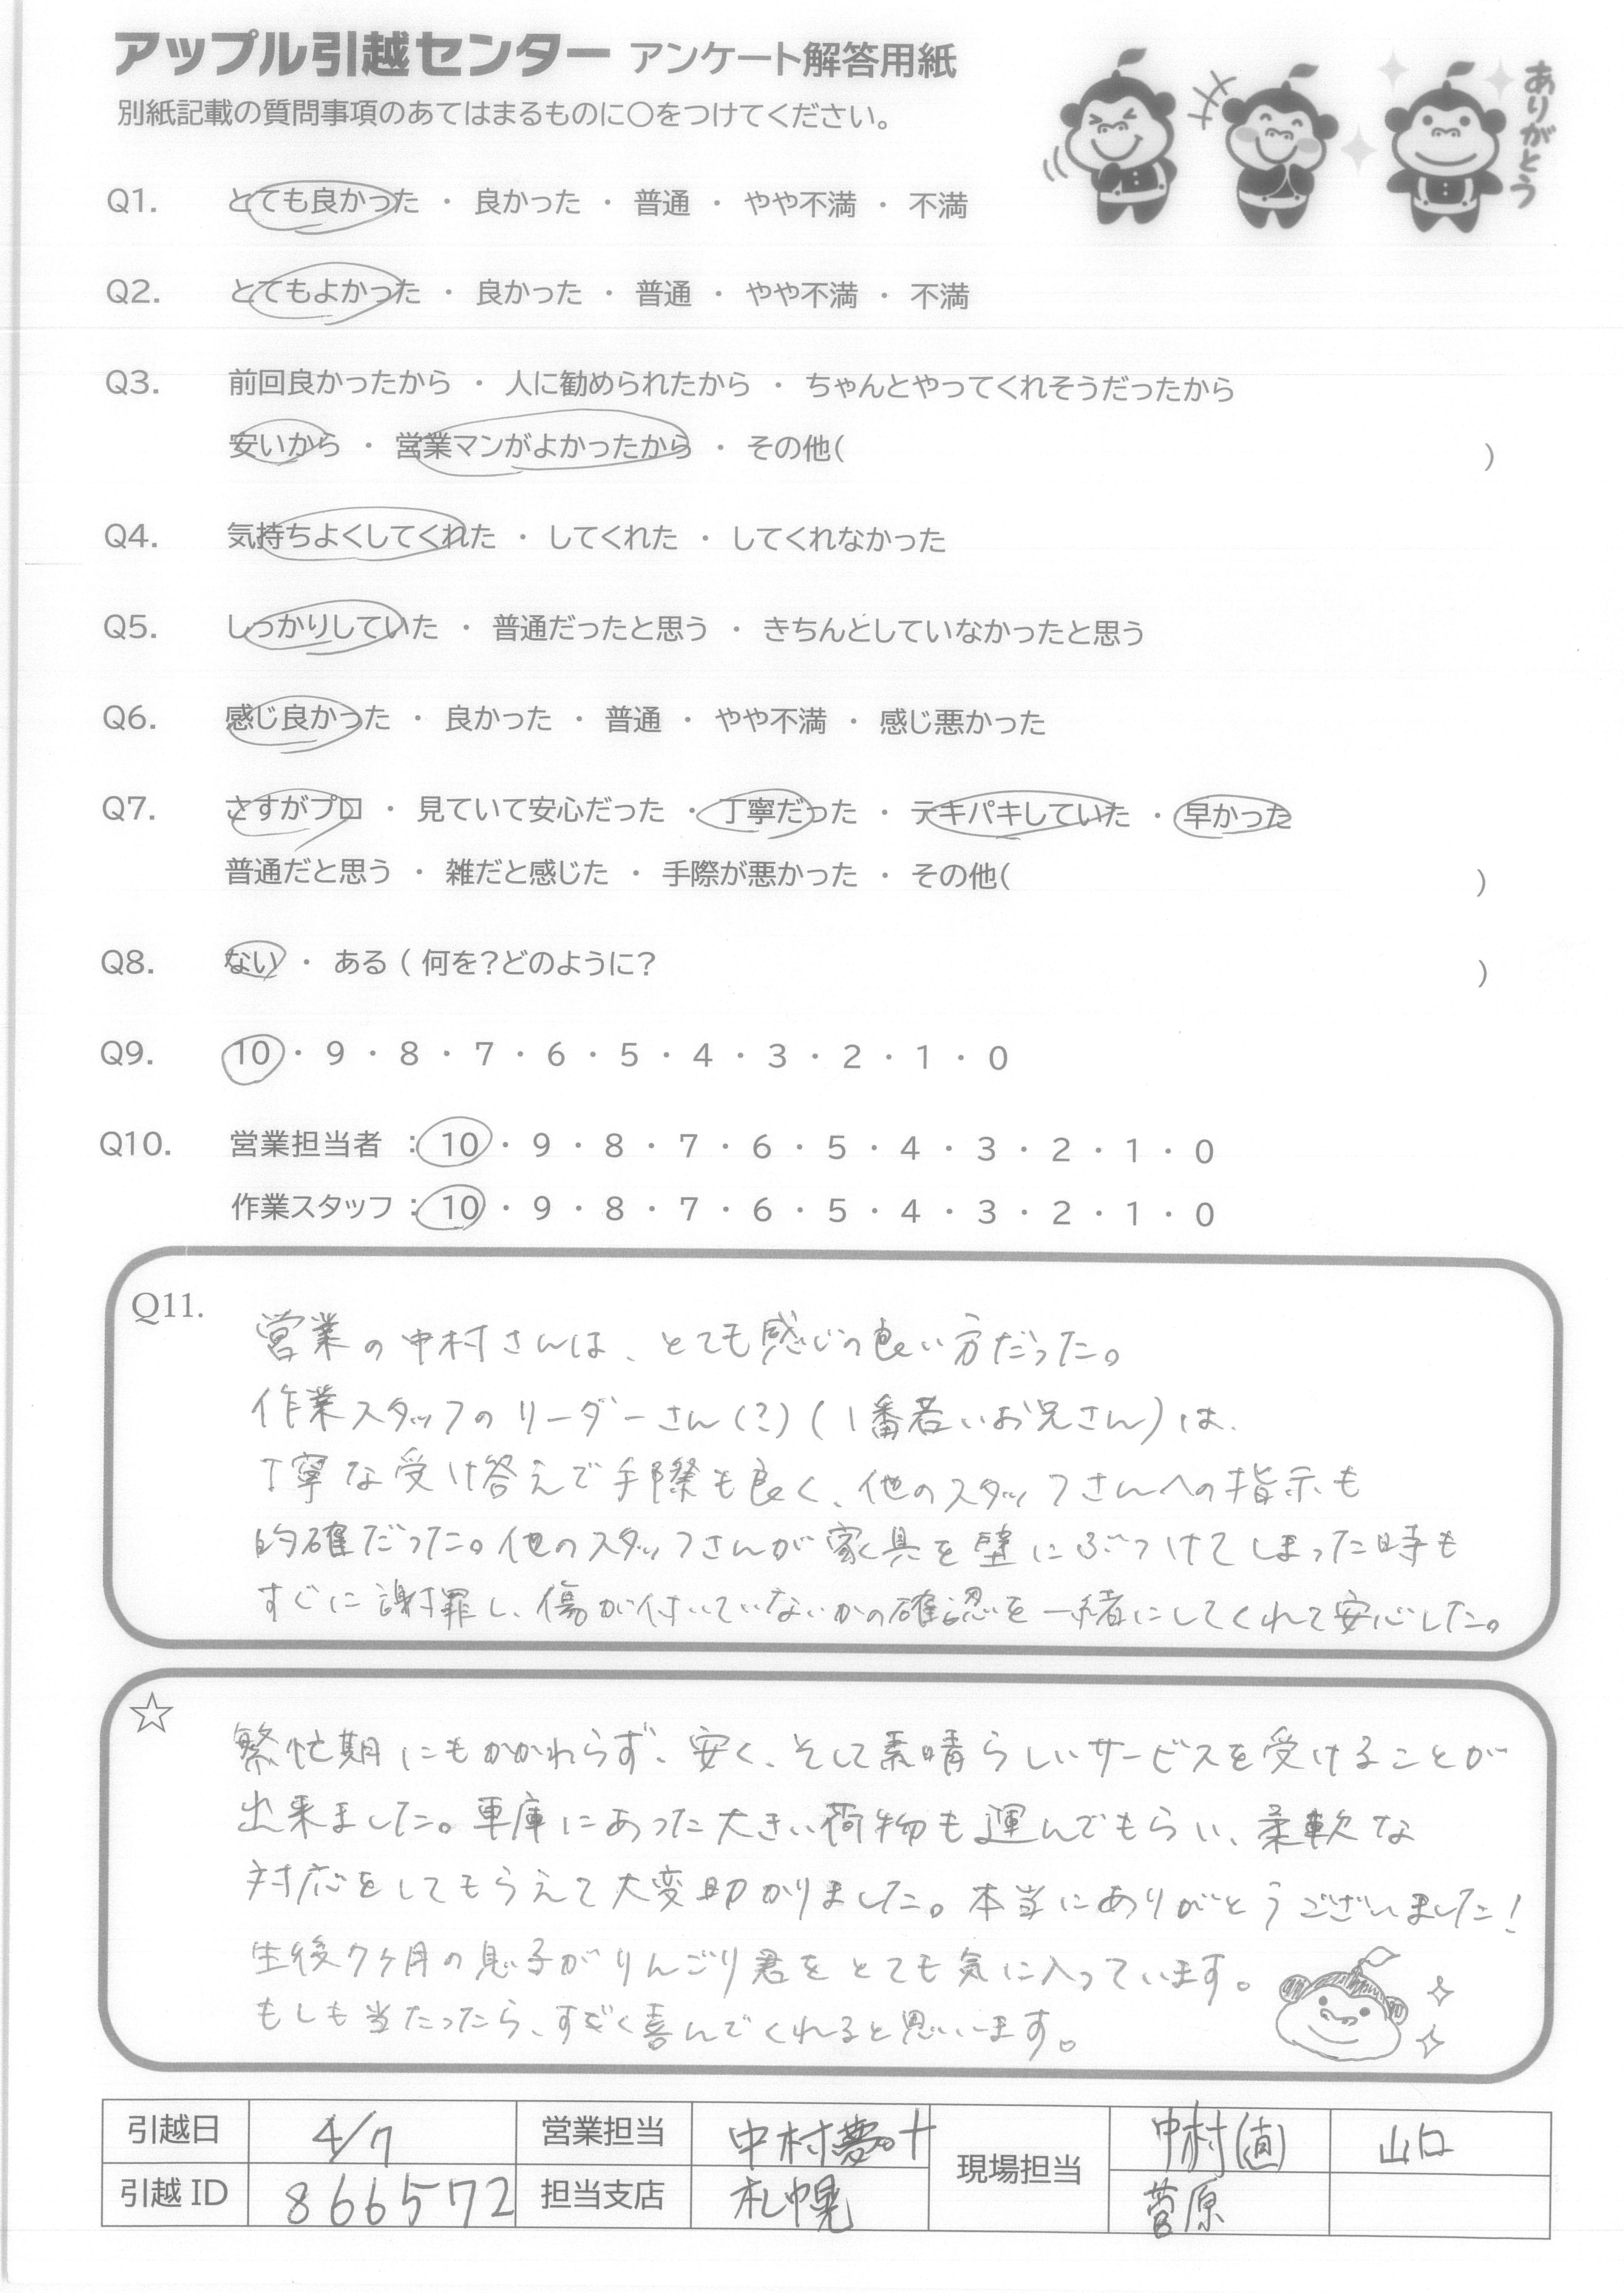 アップル引越センター アンケート解答用紙
別紙記載の質問事項のあてはまるものに○をつけてください。
ありがとう
Q1. とても良かった ・ 良かった ・ 普通 ・ やや不満 ・ 不満
Q2. とてもよかった ・ 良かった ・ 普通 ・ やや不満 ・ 不満
Q3. 前回良かったから ・ 人に勧められたから ・ ちゃんとやってくれそうだったから
安いから ・ 営業マンがよかったから ・ その他( )
Q4. 気持ちよくしてくれた ・ してくれた ・ してくれなかった
Q5. しっかりしていた ・ 普通だったと思う ・ きちんとしていなかったと思う
Q6. 感じ良かった ・ 良かった ・ 普通 ・ やや不満 ・ 感じ悪かった
Q7. さすがプロ ・ 見ていて安心だった ・ 丁寧だった ・ テキパキしていた ・ 早かった
普通だと思う ・ 雑だと感じた ・ 手際が悪かった ・ その他( )
Q8. ない ・ ある ( 何を?どのように? )
Q9. 10 ・ 9 ・ 8 ・ 7 ・ 6 ・ 5 ・ 4 ・ 3 ・ 2 ・ 1 ・ 0
Q10. 営業担当者 : 10 ・ 9 ・ 8 ・ 7 ・ 6 ・ 5 ・ 4 ・ 3 ・ 2 ・ 1 ・ 0
作業スタッフ : 10 ・ 9 ・ 8 ・ 7 ・ 6 ・ 5 ・ 4 ・ 3 ・ 2 ・ 1 ・ 0
Q11.
営業の中村さんは、とても感じの良い方だった。
作業スタッフのリーダーさん(?)(1番若いお兄さん)は、
丁寧な受け答えで手際も良く、他のスタッフさんへの指示も
的確だった。他のスタッフさんが家具を壁にぶつけてしまった時も
すぐに謝罪し、傷が付いていないかの確認を一緒にしてくれて安心した。
☆
繁忙期にもかかわらず、安く、そして素晴らしいサービスを受けることが
出来ました。車庫にあった大きい荷物も運んでもらい、柔軟な
対応をしてもらえて大変助かりました。本当にありがとうございました!
生後7ヶ月の息子がりんごり君をとても気に入っています。
もしも当たったら、すごく喜んでくれると思います。
引越日 4/7 営業担当 中村夢叶 現場担当 中村(直) 山口
引越 ID 866572 担当支店 札幌 菅原